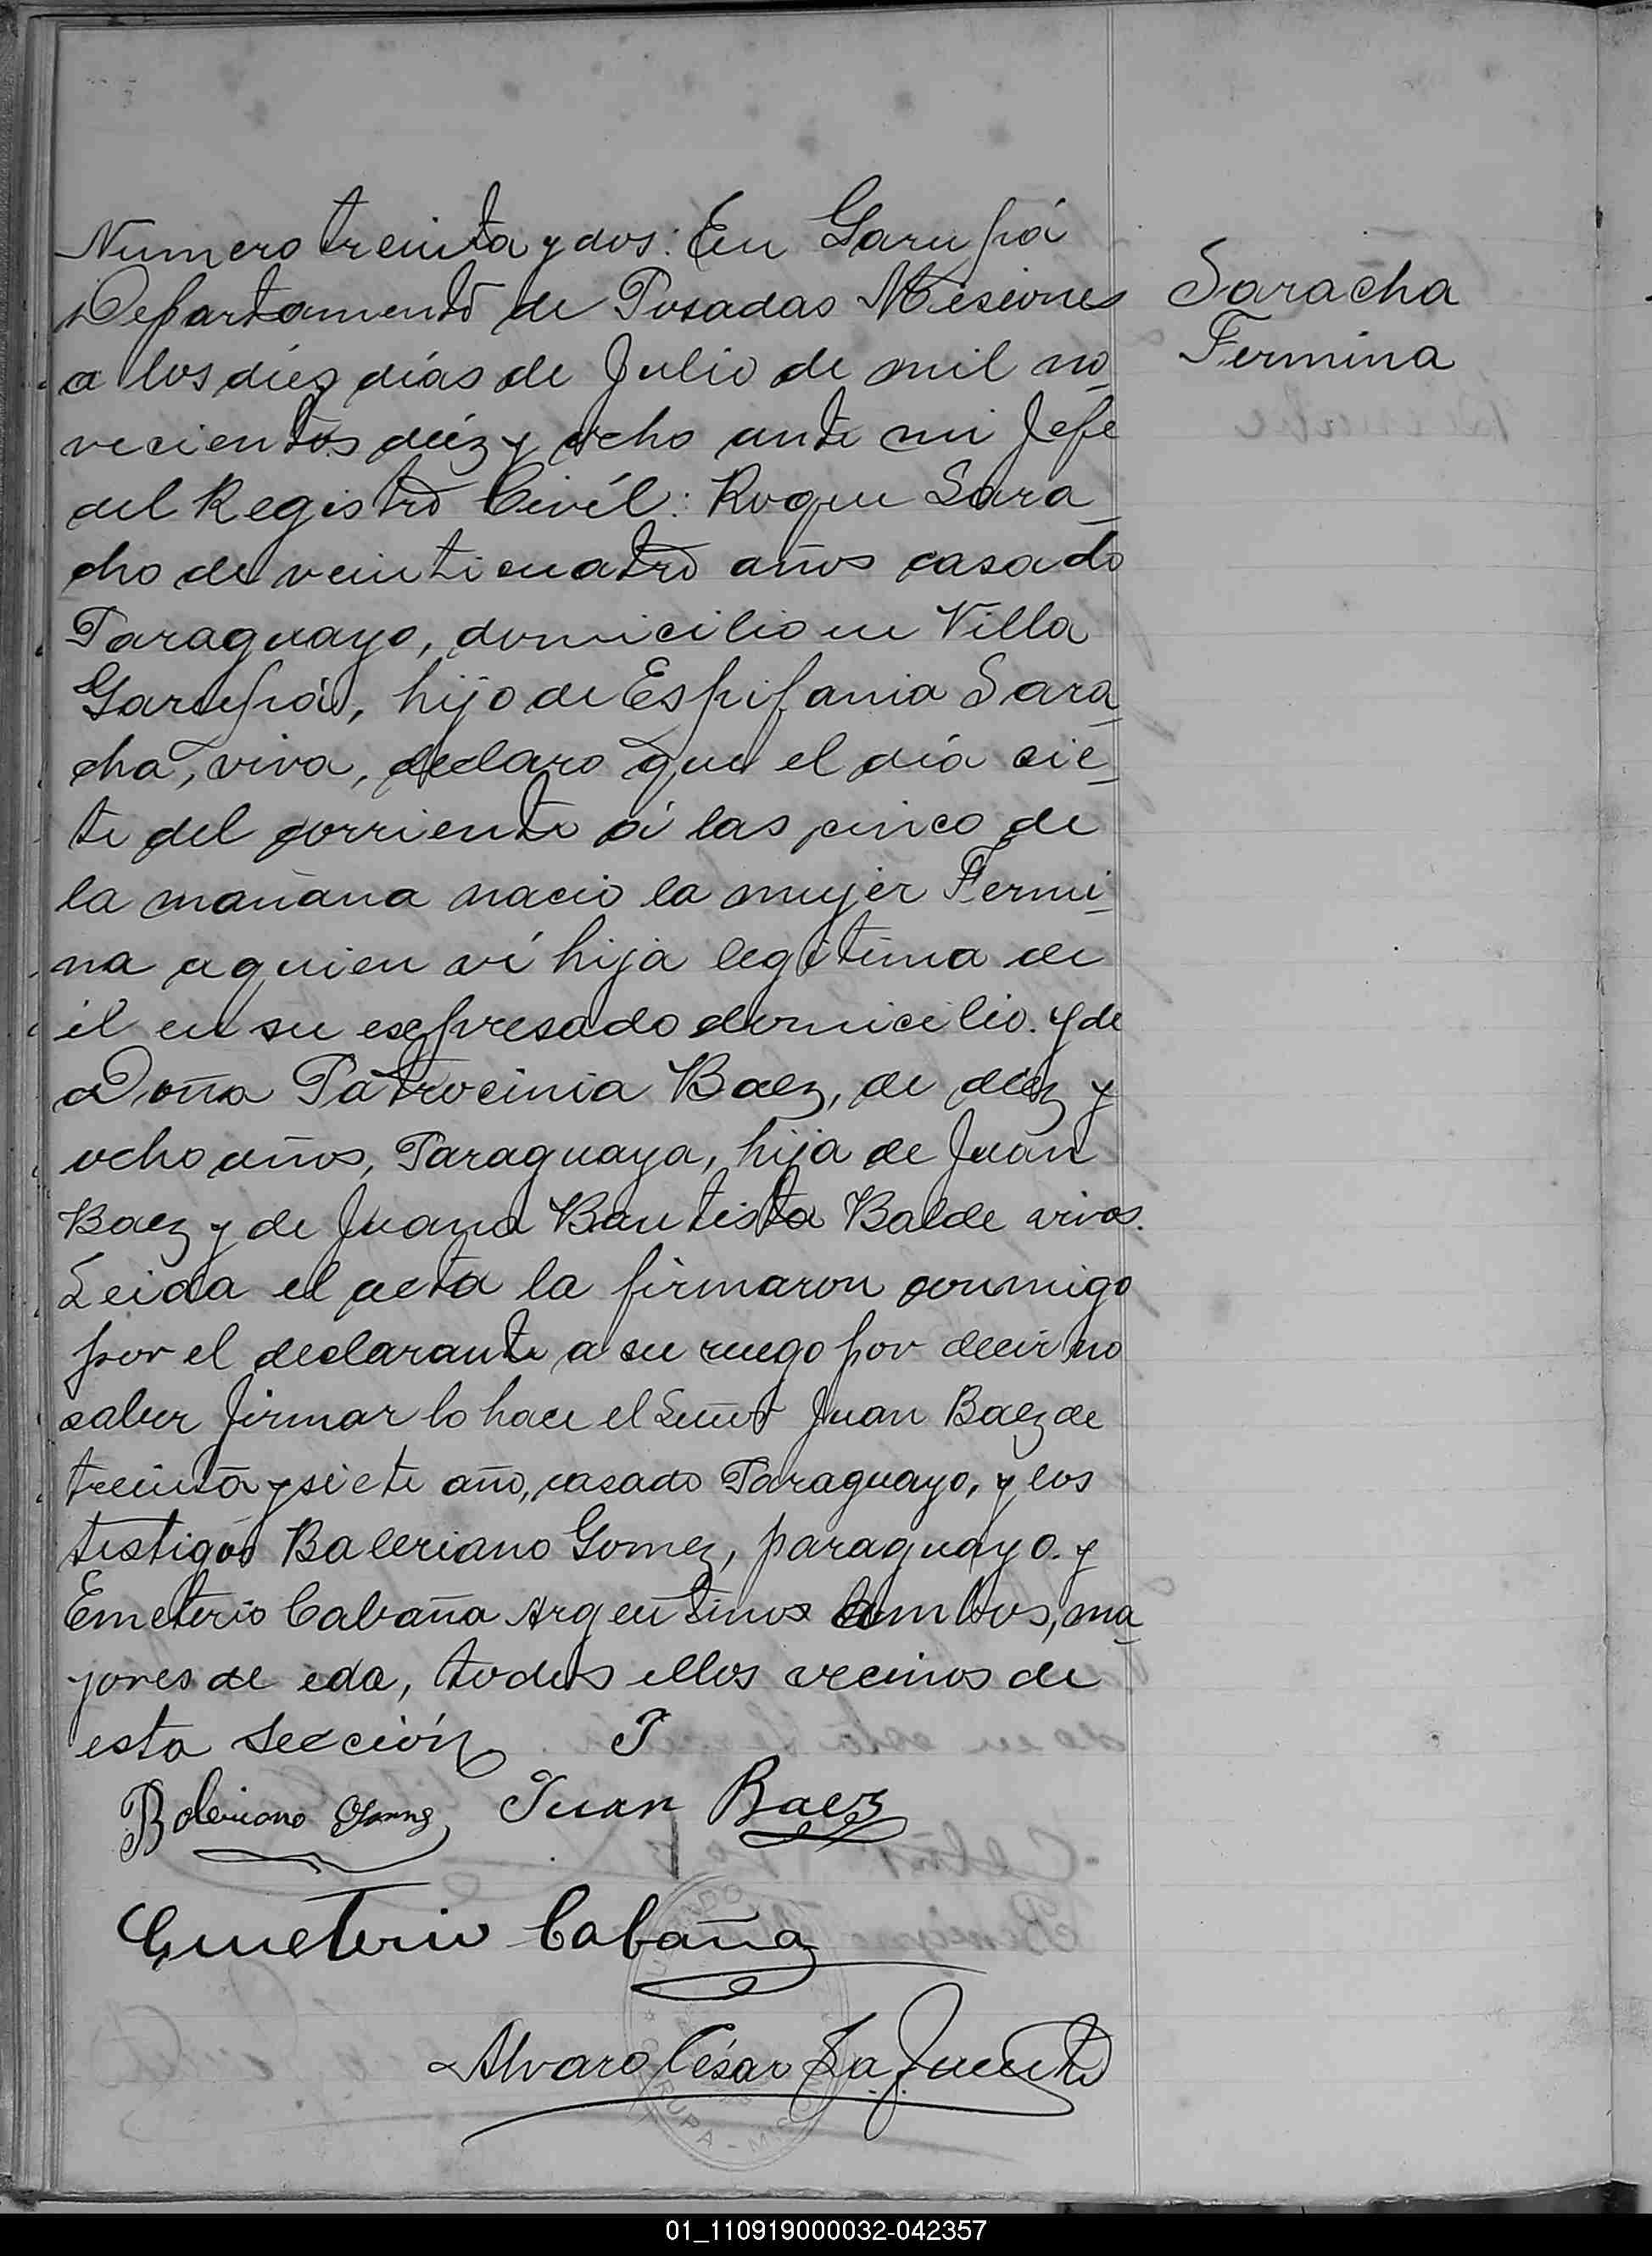 Numero treinta y dos: En Garupá
Departamento de Posadas Misiones
a los diéz días de Julio de mil no_
vecientos diéz y ocho ante mi Jefe
del Registro Civíl: Roque Sara_
cho de veinticuatro años casado
Paraguayo, domicilio en Villa
Garupá, hijo de Espifania Sara_
cha, viva, declaro que el día sie_
te del corriente á las cinco de
la mañana nacio la mujer Fermi_
na a quien ví hija legitima de
él en su esepresado domicilio. y de
Doña Patrocinia Baez, de diéz y
ocho años, Paraguaya, hija de Juan
Baez y de Juana Bautista Balde vivos.
Leida el acta la firmaron conmigo
por el declarante a su ruego por decir no
saber firmar lo hace el Señor Juan Baez de
treinta y siete año, casado Paraguayo, y los
testigos Baleriano Gomez, paraguayo. y
Emeterio Cabaña Argentinos ambos, ma_
yores de eda, todos ellos vecinos de
esta Sección
Saracha
Fermina
Baleriano Gomez Juan Baez
Emeterio Cabaña
Alvaro César La Fuente
01_110919000032-042357